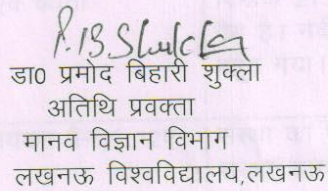 P.B.Shukla
डा0 प्रमोद बिहारी शुक्ला
अतिथि प्रवक्ता
मानव विज्ञान विभाग
लखनऊ विश्वविद्यालय,लखनऊ